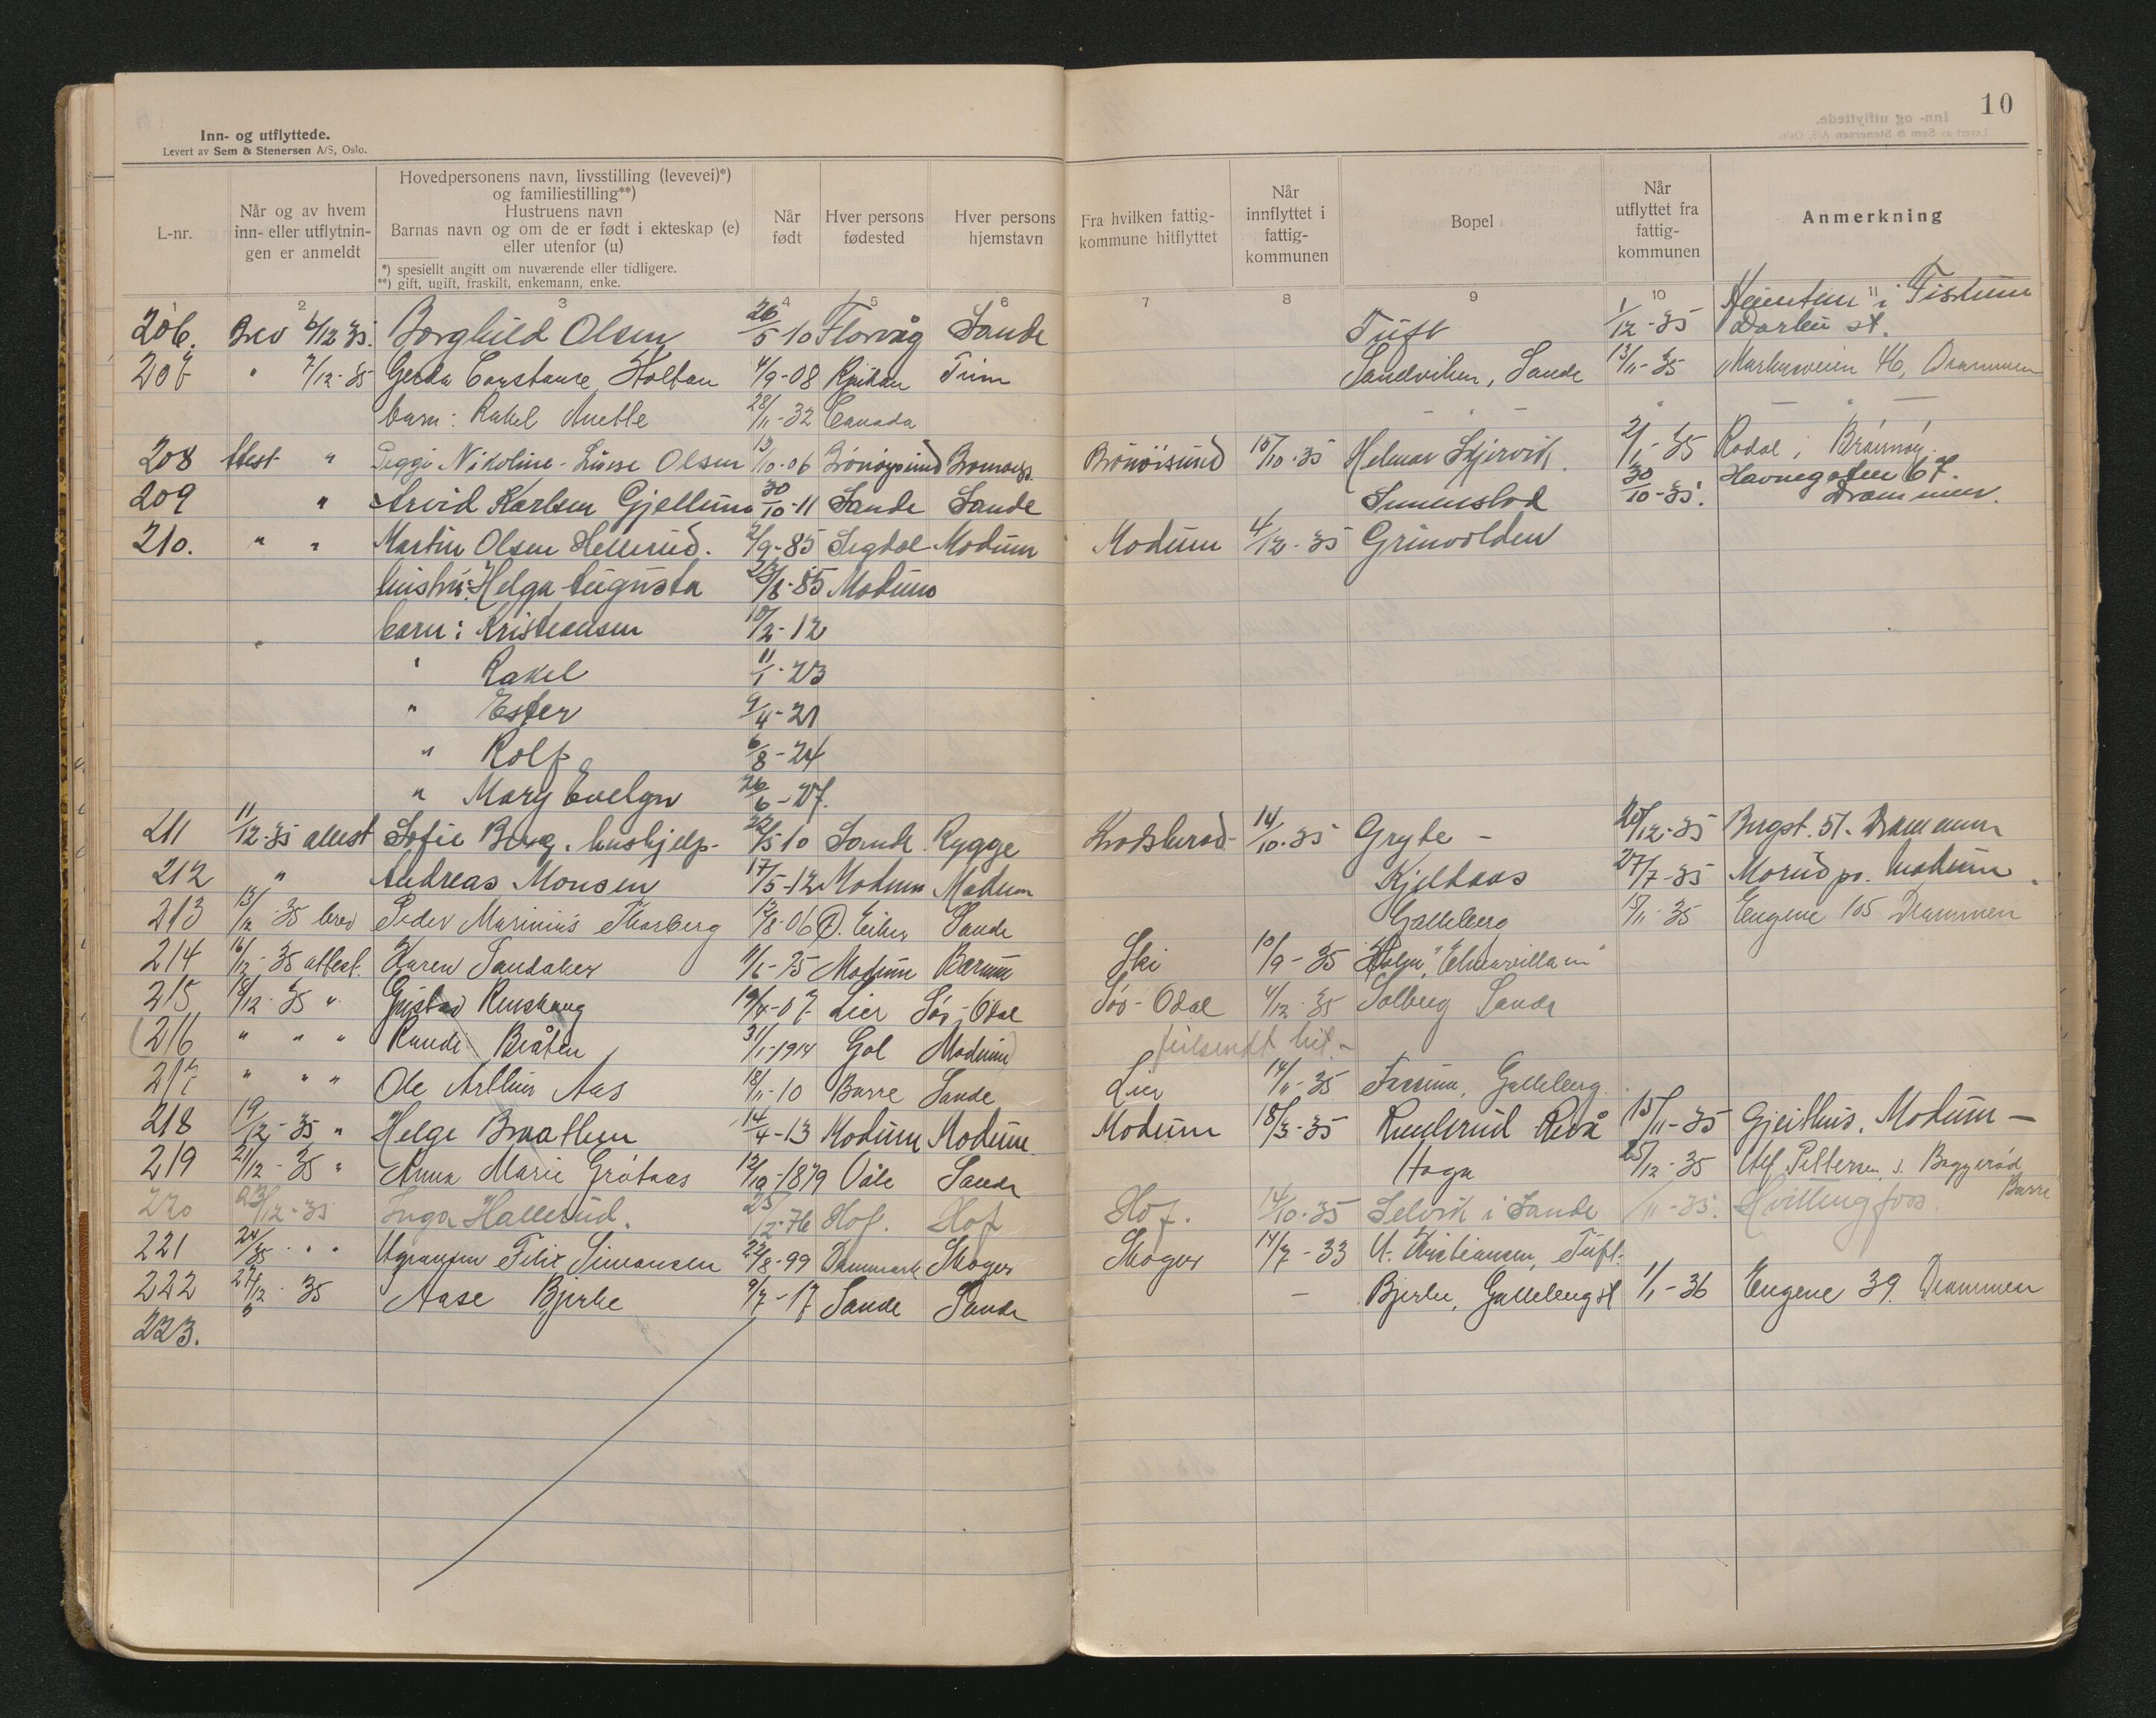 10
Inn- og utflyttede.
Levert av Sem & Stenersen A/S, Oslo.
L-nr. Når og av hvem inn- eller utflytnin- gen er anmeldt Hovedpersonens navn, livsstilling (levevei)*) og familiestilling**) Hustruens navn Barnas navn og om de er født i ekteskap (e) eller utenfor (u) Når født Hver persons fødested Hver persons hjemstavn Fra hvilken fattig- kommune hitflyttet Når innflyttet i fattig- kommunen Bopel Når utflyttet fra fattig- kommunen Anmerkning
*) spesiellt angitt om nuværende eller tidligere.
**) gift, ugift, fraskilt, enkemann, enke.
2 3 4 5 6 7 8 9 10 11
206. Brev 6/12 35. Borghild Olsen 26/5-10 Florvåg Sande Tuft 1/12-35 i Fiskum Darbu st.
207 " 7/12-35 Gerda Constanse Holtan 4/9-08 Rjukan Tinn Sandviken, Sande 13/11-35 46, Drammen
barn: Rakel Anette 28/11-32 Canada - " - — " —
208 Attest " Nikoline Olsen 13/10-06 Brönöysund Brönöisund 15/10-35 2/1-35 Rodal i Brönnöy.
209 " Arvid Karlsen Gjellum 30/10-11 Sande Sande 30/10-35. Havnegaten 67. Drammen.
210. " " Martin Olsen Hellerud. 2/9-85 Sigdal Modum Modum 4/12-35 Grinvolden
hustru: Helga Augusta 85 Modum
barn: Kristiansen 10/2-12
" Rakel 11/1-23
" Ester 9/4-21
" Rolf 6/8-24
" Mary Evelyn 26/6-27.
211 11/12-35 attest Sofie Berg. hushjelp- 22/5 10 Sande Rygge 14/10-35 Gryte - 20/12-35 51. Drammen
212 " Andreas Monsen 17/5-12 Modum Modum Kjeldaas 27/7-35 Morud pr. Modum.
213 13/12-35 brev Peder Marinius Thorberg 12/8-06 Ø. Eiker Sande Galleberg 15/11-35 Engene 105 Drammen
214 16/12-35 attest. Karen Sandaker 11/6-75 Modum Bærum Ski 10/9-35 Holm,
215 18/12-35 " Gustav Renskaug 19/4-07 Lier Sør-Odal Sør-Odal 4/12-35 Solberg Sande
(216 " " " Randi Bråten 31/1-1914 Gol Modum) feilsendt hit.-
217 " " " Ole Arthur Aas 18/11-10 Borre Sande Lier 14/11-35 Galleberg.
218 19/12-35 " Helge Braathen 14/4-13 Modum Modum. Modum 18/3-35 Revå 15/11-35 Gjeithus, Modum —
219 21/12-35 " Anna Marie Gråtaas 12/10-1879 Våle Sande Haga 25/12-35 Alf Pettersen, Borre
220 23/12-35 Inga Hallerud. 25/12-76 Hof. Hof Hof. 14/10-35 Selvik i Sande /11-35. Hvittingfoss.
221 24/35 " " Felix Simonsen 22/8-99 Danmark Skoger Skoger 14/7-33 Kristiansen, Tuft.
222 27/12 35 Aase Bjerke 9/7-17 Sande Sande - Bjerke, Galleberg st 1/1-36 Engene 39. Drammen
223.